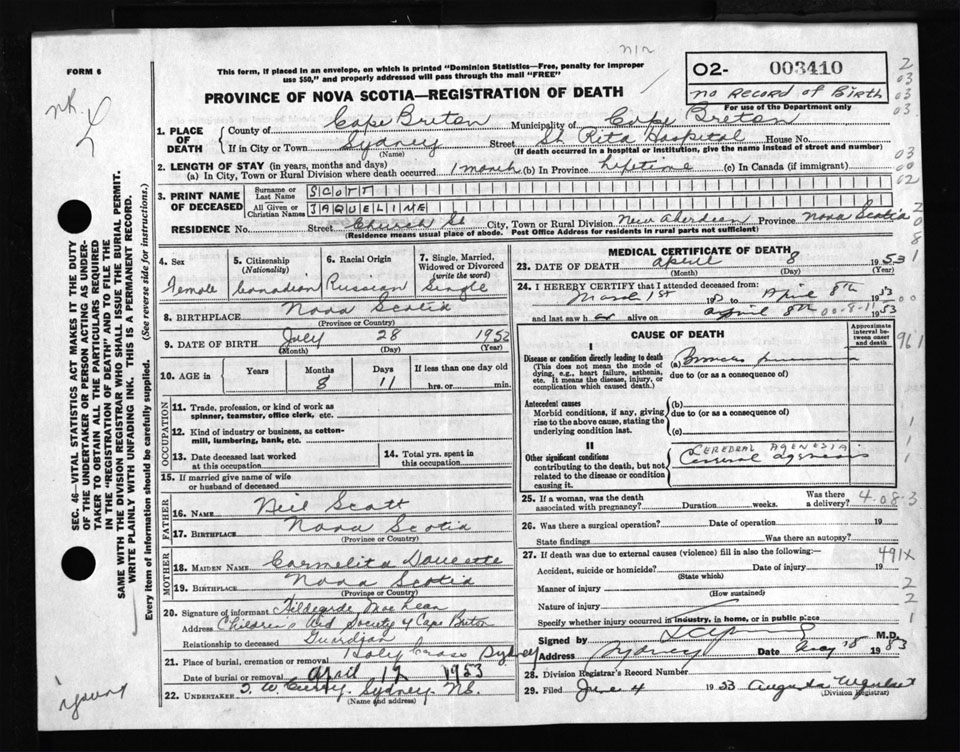 FORM 6
This form, if placed in an envelope, on which is printed "Dominion Statistics—Free, penalty for improper
use $50," and properly addressed will pass through the mail "FREE"
O2- 003410
no RECORD of BIRTH
For use of the Department only
PROVINCE OF NOVA SCOTIA—REGISTRATION OF DEATH
1. PLACE OF DEATH
County of Cape Breton Municipality of Cape Breton
If in City or Town Sydney Street St Rita Hospital House No.
(Name) (If death occurred in a hospital or institution, give the name instead of street and number)
2. LENGTH OF STAY (in years, months and days)
(a) In City, Town or Rural Division where death occurred 1 month (b) In Province lifetime (c) In Canada (if immigrant)
3. PRINT NAME OF DECEASED
Surname or Last Name SCOTT
All Given or Christian Names JAQUELINE
RESIDENCE No. Street St. City, Town or Rural Division New Aberdeen Province Nova Scotia
(Residence means usual place of abode. Post Office Address for residents in rural parts not sufficient)
4. Sex
Female
5. Citizenship (Nationality)
Canadian
6. Racial Origin
Russian
7. Single, Married, Widowed or Divorced (write the word)
Single
8. BIRTHPLACE Nova Scotia
(Province or Country)
9. DATE OF BIRTH July 28 1952
(Month) (Day) (Year)
10. AGE in Years Months Days If less than one day old
8 11 hrs. or min.
OCCUPATION
11. Trade, profession, or kind of work as
spinner, teamster, office clerk, etc.
12. Kind of industry or business, as cotton-
mill, lumbering, bank, etc.
13. Date deceased last worked
at this occupation
14. Total yrs. spent in
this occupation
15. If married give name of wife
or husband of deceased
FATHER
16. Name Neil Scott
17. Birthplace Nova Scotia
(Province or Country)
MOTHER
18. MAIDEN NAME Carmelita
19. BIRTHPLACE Nova Scotia
(Province or Country)
20. Signature of informant Hildegarde MacLean
Address Children's Aid Society of Cape Breton
Relationship to deceased Guardian
21. Place of burial, cremation or removal Holy Cross Sydney
Date of burial or removal april 12 1953
22. UNDERTAKER T. W. Curry, Sydney N.S.
(Name and address)
MEDICAL CERTIFICATE OF DEATH
23. DATE OF DEATH april 8 1953
(Month) (Day) (Year)
24. I HEREBY CERTIFY that I attended deceased from:
March 1st 195 to April 8th 1953
and last saw her alive on april 8th 1953
CAUSE OF DEATH
Approximate interval between onset and death
I
Disease or condition directly leading to death
(This does not mean the mode of
dying, e.g., heart failure, asthenia,
etc. It means the disease, injury, or
complication which caused death.)
(a)
due to (or as a consequence of)
Antecedent causes
Morbid conditions, if any, giving
rise to the above cause, stating the
underlying condition last.
(b)
due to (or as a consequence of)
(c)
II
Other significant conditions
contributing to the death, but not
related to the disease or condition
causing it.
CEREBRAL AGENESIA
Cerebral agenesis
25. If a woman, was the death
associated with pregnancy? Duration weeks. Was there a delivery?
4-08-3
26. Was there a surgical operation? Date of operation 19
State findings Was there an autopsy?
27. If death was due to external causes (violence) fill in also the following:—
491X
Accident, suicide or homicide? Date of injury 19
(State which)
Manner of injury
(How sustained)
Nature of injury
Specify whether injury occurred in industry, in home, or in public place
Signed by M.D.
Address Sydney Date May 15 1953
28. Division Registrar's Record Number
29. Filed June 4 1953 Augusta
(Division Registrar)
SEC. 46—VITAL STATISTICS ACT MAKES IT THE DUTY
OF THE UNDERTAKER OR PERSON ACTING AS UNDER-
TAKER TO OBTAIN ALL THE PARTICULARS REQUIRED
IN THE "REGISTRATION OF DEATH" AND TO FILE THE
SAME WITH THE DIVISION REGISTRAR WHO SHALL ISSUE THE BURIAL PERMIT.
WRITE PLAINLY WITH UNFADING INK. THIS IS A PERMANENT RECORD.
Every item of information should be carefully supplied. (See reverse side for instructions.)